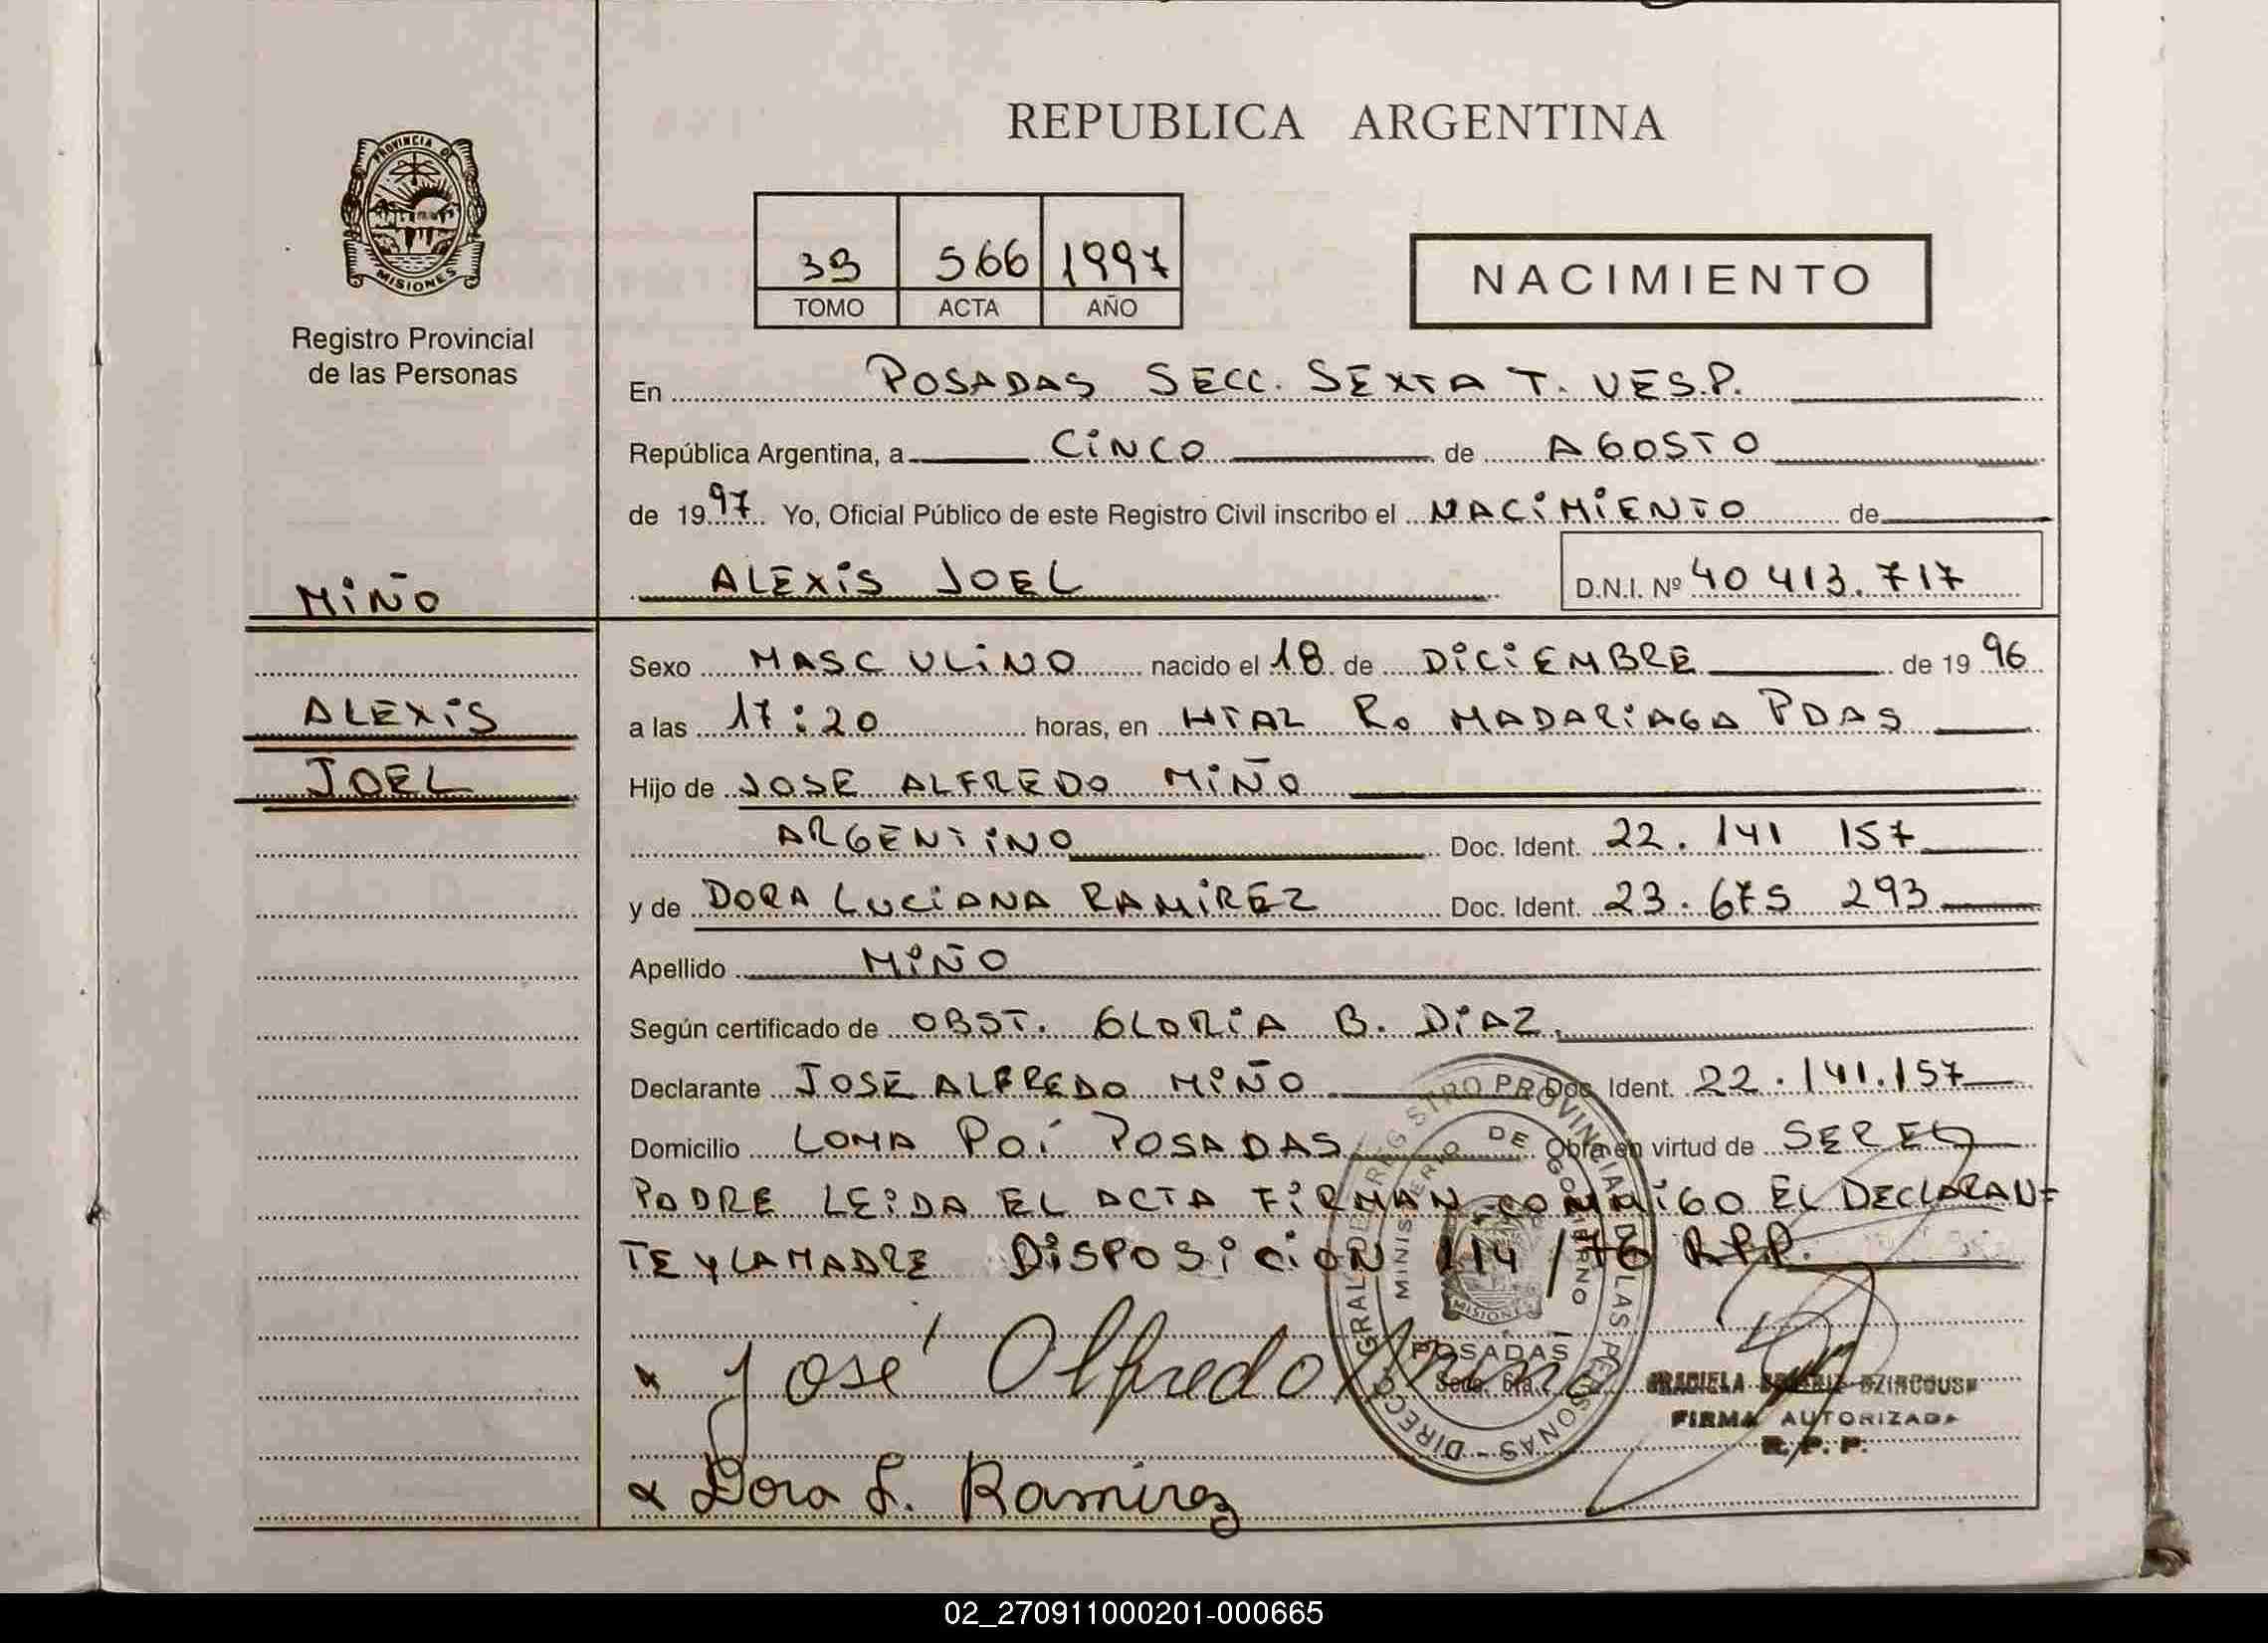 REPUBLICA ARGENTINA
PROVINCIA DE
MISIONES
Registro Provincial
de las Personas
33 566 1997
TOMO ACTA AÑO
NACIMIENTO
En POSADAS SECC. SEXTA T. VESP.
República Argentina, a CINCO de AGOSTO
de 1997 Yo, Oficial Público de este Registro Civil inscribo el NACIMIENTO de
ALEXIS JOEL D.N.I. Nº 40 413.717
MIÑO
ALEXIS
JOEL
Sexo MASCULINO nacido el 18 de DICIEMBRE de 1996
a las 17:20 horas, en HTAL R. MADARIAGA PDAS
Hijo de JOSE ALFREDO MIÑO
ARGENTINO Doc. Ident. 22.141 157
y de DORA LUCIANA RAMIREZ Doc. Ident. 23.675 293
Apellido MIÑO
Según certificado de OBST. GLORIA B. DIAZ.
Declarante JOSE ALFREDO MIÑO Doc. Ident. 22.141.157
Domicilio LOMA POI POSADAS Obra en virtud de SER EL
PADRE LEIDA EL ACTA FIRMAN CONMIGO EL DECLARAN=
TE Y LA MADRE DISPOSICION 114/76 R.P.P.
José Alfredo Miño
Dora L. Ramirez
DIRECC. GRAL. DE REGISTRO PROVINCIAL DE LAS PERSONAS
MINISTERIO DE GOBIERNO
MISIONES
POSADAS
Secc. 6ta.
GRACIELA
FIRMA AUTORIZADA
R. P. P.
02_270911000201-000665